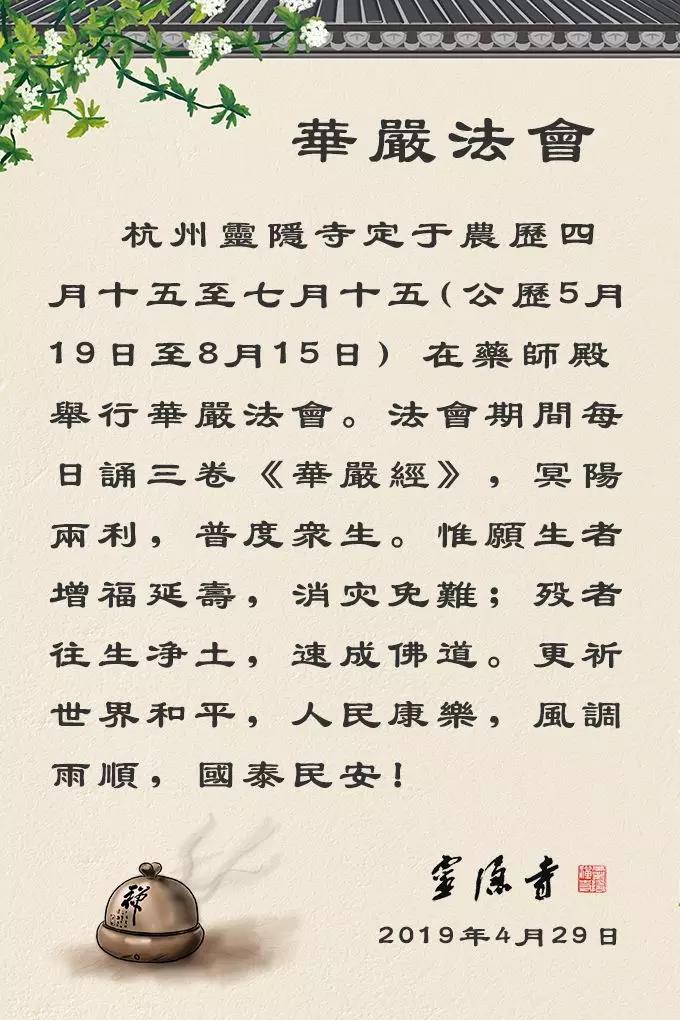 華嚴法會
杭州靈隱寺定于農歷四
月十五至七月十五(公歷5月
19日至8月15日) 在藥師殿
舉行華嚴法會。法會期間每
日誦三卷《華嚴經》，冥陽
兩利，普度衆生。惟願生者
增福延壽，消灾免難；殁者
往生净土，速成佛道。更祈
世界和平，人民康樂，風調
雨順，國泰民安！
禪
靈隱寺
2019年4月29日